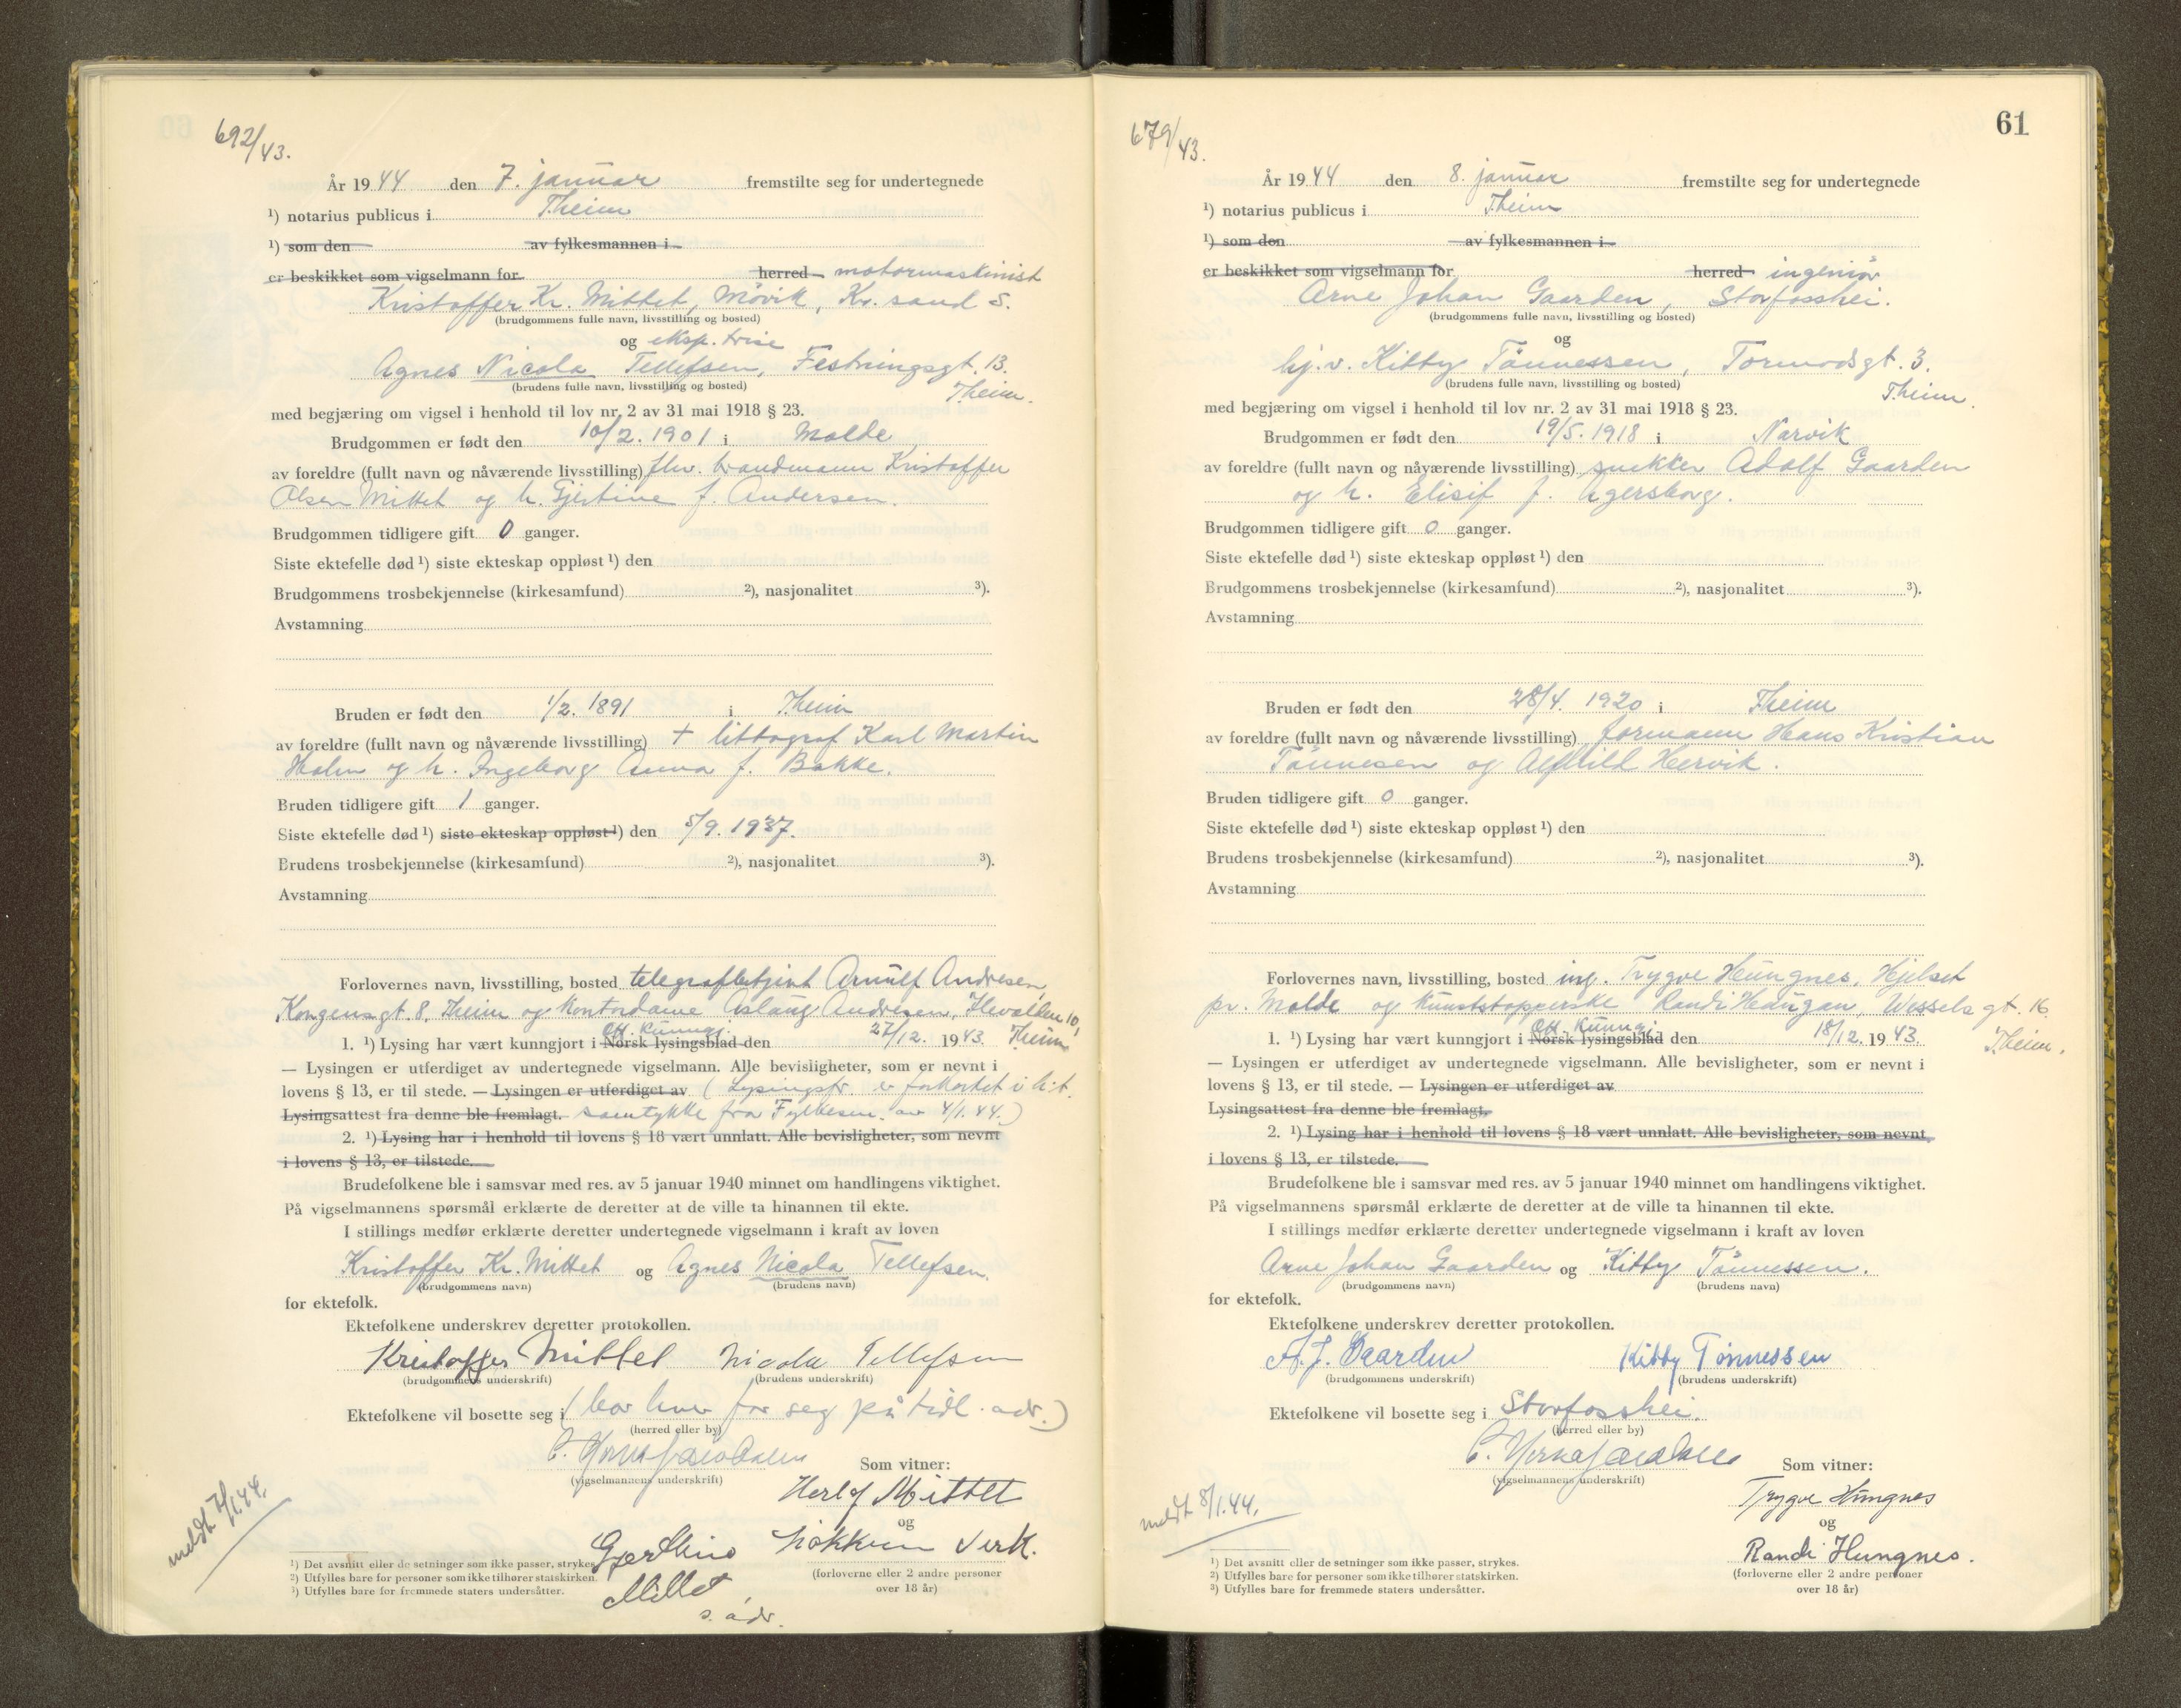 692/43.
År 1944 den 7. januar fremstilte seg for undertegnede
¹) notarius publicus i Theim
¹) som den av fylkesmannen i
er beskikket som vigselmann for herred motormaskinist
Kristoffer Kr. Mittet, Mövik, Kr.sand S.
(brudgommens fulle navn, livsstilling og bosted)
og eksp.trise
Agnes Nicola Tellefsen, Festningsgt. 13.
(brudens fulle navn, livsstilling og bosted)
Theim.
med begjæring om vigsel i henhold til lov nr. 2 av 31 mai 1918 § 23.
Brudgommen er født den 10/2. 1901 i Molde
av foreldre (fullt navn og nåværende livsstilling) fhv. brandmann Kristoffer
Olsen Mittet og h. Gjertine f. Andersen.
Brudgommen tidligere gift 0 ganger.
Siste ektefelle død ¹) siste ekteskap oppløst ¹) den
Brudgommens trosbekjennelse (kirkesamfund) ²), nasjonalitet ³).
Avstamning
Bruden er født den 1/2. 1891 i Theim
av foreldre (fullt navn og nåværende livsstilling) + littograf Karl Martin
Holm og h. Ingeborg Anna f. Bakke.
Bruden tidligere gift 1 ganger.
Siste ektefelle død ¹) siste ekteskap oppløst ¹) den 5/9. 1937.
Brudens trosbekjennelse (kirkesamfund) ²), nasjonalitet ³).
Avstamning
Forlovernes navn, livsstilling, bosted telegrafbetjent Arnulf Andresen,
Kongensgt. 8, Theim og kontordame Aslaug Andresen, Ilevollen 10,
Off. kunngj. Theim
1. ¹) Lysing har vært kunngjort i Norsk lysingsblad den 27/12. 1943.
— Lysingen er utferdiget av undertegnede vigselmann. Alle bevisligheter, som er nevnt i
lovens § 13, er til stede. — Lysingen er utferdiget av (Lysingsfr. er forkortet i h.t.
Lysingsattest fra denne ble fremlagt. samtykke fra Fylkesm. av 4/1.44.)
2. ¹) Lysing har i henhold til lovens § 18 vært unnlatt. Alle bevisligheter, som nevnt
i lovens § 13, er tilstede.
Brudefolkene ble i samsvar med res. av 5 januar 1940 minnet om handlingens viktighet.
På vigselmannens spørsmål erklærte de deretter at de ville ta hinannen til ekte.
I stillings medfør erklærte deretter undertegnede vigselmann i kraft av loven
Kristoffer Kr. Mittet og Agnes Nicola Tellefsen.
(brudgommens navn) (brudens navn)
for ektefolk.
Ektefolkene underskrev deretter protokollen.
Kristoffer Mittet Nicola Tellefsen
(brudgommens underskrift) (brudens underskrift)
Ektefolkene vil bosette seg i (bor hver for seg på tidl. adr.)
(herred eller by)
(vigselmannens underskrift) Som vitner:
Herlof Mittet
og
Løkken Verk.
Gjertine
Mittet
s. adr.
(forloverne eller 2 andre personer
over 18 år)
meldt 7/1.44.
¹) Det avsnitt eller de setninger som ikke passer, strykes.
²) Utfylles bare for personer som ikke tilhører statskirken.
³) Utfylles bare for fremmede staters undersåtter.
61
679/43.
År 1944 den 8. januar fremstilte seg for undertegnede
¹) notarius publicus i Theim
¹) som den av fylkesmannen i
er beskikket som vigselmann for herred ingeniör
Arne Johan Gaarden, Storfosshei.
(brudgommens fulle navn, livsstilling og bosted)
og
hj.v. Kitty Tönnessen, Tormodsgt. 3.
(brudens fulle navn, livsstilling og bosted)
Theim.
med begjæring om vigsel i henhold til lov nr. 2 av 31 mai 1918 § 23.
Brudgommen er født den 19/5. 1918 i Narvik
av foreldre (fullt navn og nåværende livsstilling) snekker Adolf Gaarden
og h. Elisif f. Agersborg.
Brudgommen tidligere gift 0 ganger.
Siste ektefelle død ¹) siste ekteskap oppløst ¹) den
Brudgommens trosbekjennelse (kirkesamfund) ²), nasjonalitet ³).
Avstamning
Bruden er født den 28/4. 1920 i Theim
av foreldre (fullt navn og nåværende livsstilling) formann Hans Kristian
Tönnesen og Alfhild Hervik.
Bruden tidligere gift 0 ganger.
Siste ektefelle død ¹) siste ekteskap oppløst ¹) den
Brudens trosbekjennelse (kirkesamfund) ²), nasjonalitet ³).
Avstamning
Forlovernes navn, livsstilling, bosted ing. Trygve Hungnes, Hjelset
pr. Molde og kunststopperske Randi Haugan, Wessels gt. 16.
Off. kunngj. Theim.
1. ¹) Lysing har vært kunngjort i Norsk lysingsblad den 18/12. 1943.
— Lysingen er utferdiget av undertegnede vigselmann. Alle bevisligheter, som er nevnt i
lovens § 13, er til stede. — Lysingen er utferdiget av
Lysingsattest fra denne ble fremlagt.
2. ¹) Lysing har i henhold til lovens § 18 vært unnlatt. Alle bevisligheter, som nevnt
i lovens § 13, er tilstede.
Brudefolkene ble i samsvar med res. av 5 januar 1940 minnet om handlingens viktighet.
På vigselmannens spørsmål erklærte de deretter at de ville ta hinannen til ekte.
I stillings medfør erklærte deretter undertegnede vigselmann i kraft av loven
Arne Johan Gaarden og Kitty Tönnessen.
(brudgommens navn) (brudens navn)
for ektefolk.
Ektefolkene underskrev deretter protokollen.
A.J. Gaarden Kitty Tönnessen
(brudgommens underskrift) (brudens underskrift)
Ektefolkene vil bosette seg i Storfosshei.
(herred eller by)
(vigselmannens underskrift) Som vitner:
Trygve Hungnes
og
Randi Hungnes.
(forloverne eller 2 andre personer
over 18 år)
meldt 8/1.44.
¹) Det avsnitt eller de setninger som ikke passer, strykes.
²) Utfylles bare for personer som ikke tilhører statskirken.
³) Utfylles bare for fremmede staters undersåtter.